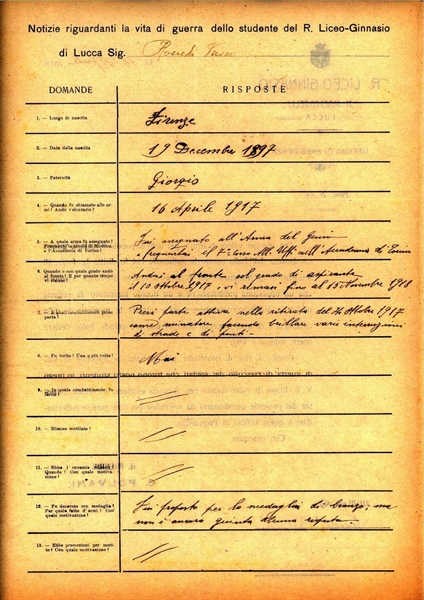 Notizie riguardanti la vita di guerra dello studente del R. Liceo-Ginnasio
di Lucca Sig.
DOMANDE
RISPOSTE
1. — Luogo di nascita
Firenze
2. — Data della nascita
19 Decembre 1897
3. — Paternità
Giorgio
4. — Quando fu chiamato alle armi? Andò volontario?
16 Aprile 1917
5. — A quale arma fu assegnato?
Frequentò la scuola di Modena o l'Accademia di Torino?
Fui assegnato all'Arma del Genio
e frequentai il All. Uff. nell'Accademia di Torino
Quando e con quale grado andò al fronte? E per quanto tempo vi rimase?
Andai al fronte col grado di aspirante
il 10 Ottobre 1917 e vi rimasi fino al 15 Novembre 1918
7. — A quali combattimenti prese parte?
Presi parte attiva nella ritirata del 24 Ottobre 1917
come minatore facendo brillare varie interruzioni
di strade e di ponti —
8. — Fu ferito? Una o più volte?
Mai
9. — In quale combattimento fu ferito?
10. — Rimase mutilato?
11. — Ebbe
Quando? Con quale motivazione?
12. — Fu decorato con medaglia?
Per quale fatto d'armi? Con quale motivazione?
Fui proposto per la medaglia di bronzo, ma
non è ancora giunta alcuna risposta.
13. — Ebbe promozioni per merito? Con quale motivazione?